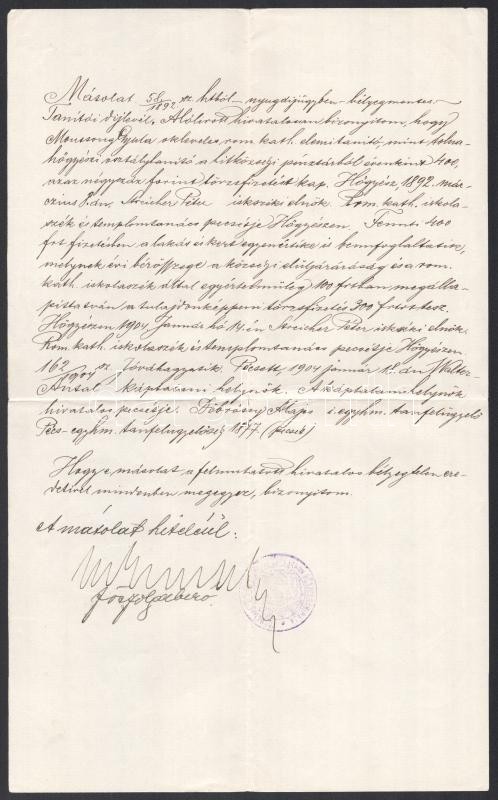 Másolat 58/1892 sz. htból – nyugdíjügyben – bélyegmentes –
Tanítói díjlevél, Alólirott hivatalosan bizonyitom, hogy
Gyula okleveles rom. kath. elemi tanitó, mint tolna-
hőgyészi osztálytanitó a hitközségi pénztárból évenkint 400,
azaz négyszáz forint törzsfizetést kap. Hőgyész, 1892. már-
czius 8. dn. Streicher Péter iskszéki elnök. Rom. kath. iskola-
szék és templomtanács pecsétje Hőgyészen. Fennti 400
frt fizetésben a lakás és kert egyenértéke is bennfoglaltatik,
melynek évi bérösszege a községi elüljáróság és a rom.
kath. iskolaszék által egyértelmüleg 100 frtban megálla-
pittatván, a tulajdonképpeni törzsfizetés 300 frtot tesz.
Hőgyészen 1904 Január hó 14-én Streicher Péter iskszéki elnök.
Rom. kath. iskolaszék és templomtanács pecsétje Hőgyészen.
162/1904 sz. Jóváhagyatik. Pécsett, 1904 január 18. dn. Walter
Antal káptalani helynök. A káptalani helynök
hivatalos pecsétje. Döbrössy Alajos s. egyhm. tanfelügyelő
Pécs-egyhm. tanfelügyelőség 1877. (pecsét)
Hogy e másolat, a felmutatott hivatalos bélyegtelen ere-
detivel mindenben megegyez, bizonyitom.
A másolat hiteléül:
főszolgabiró